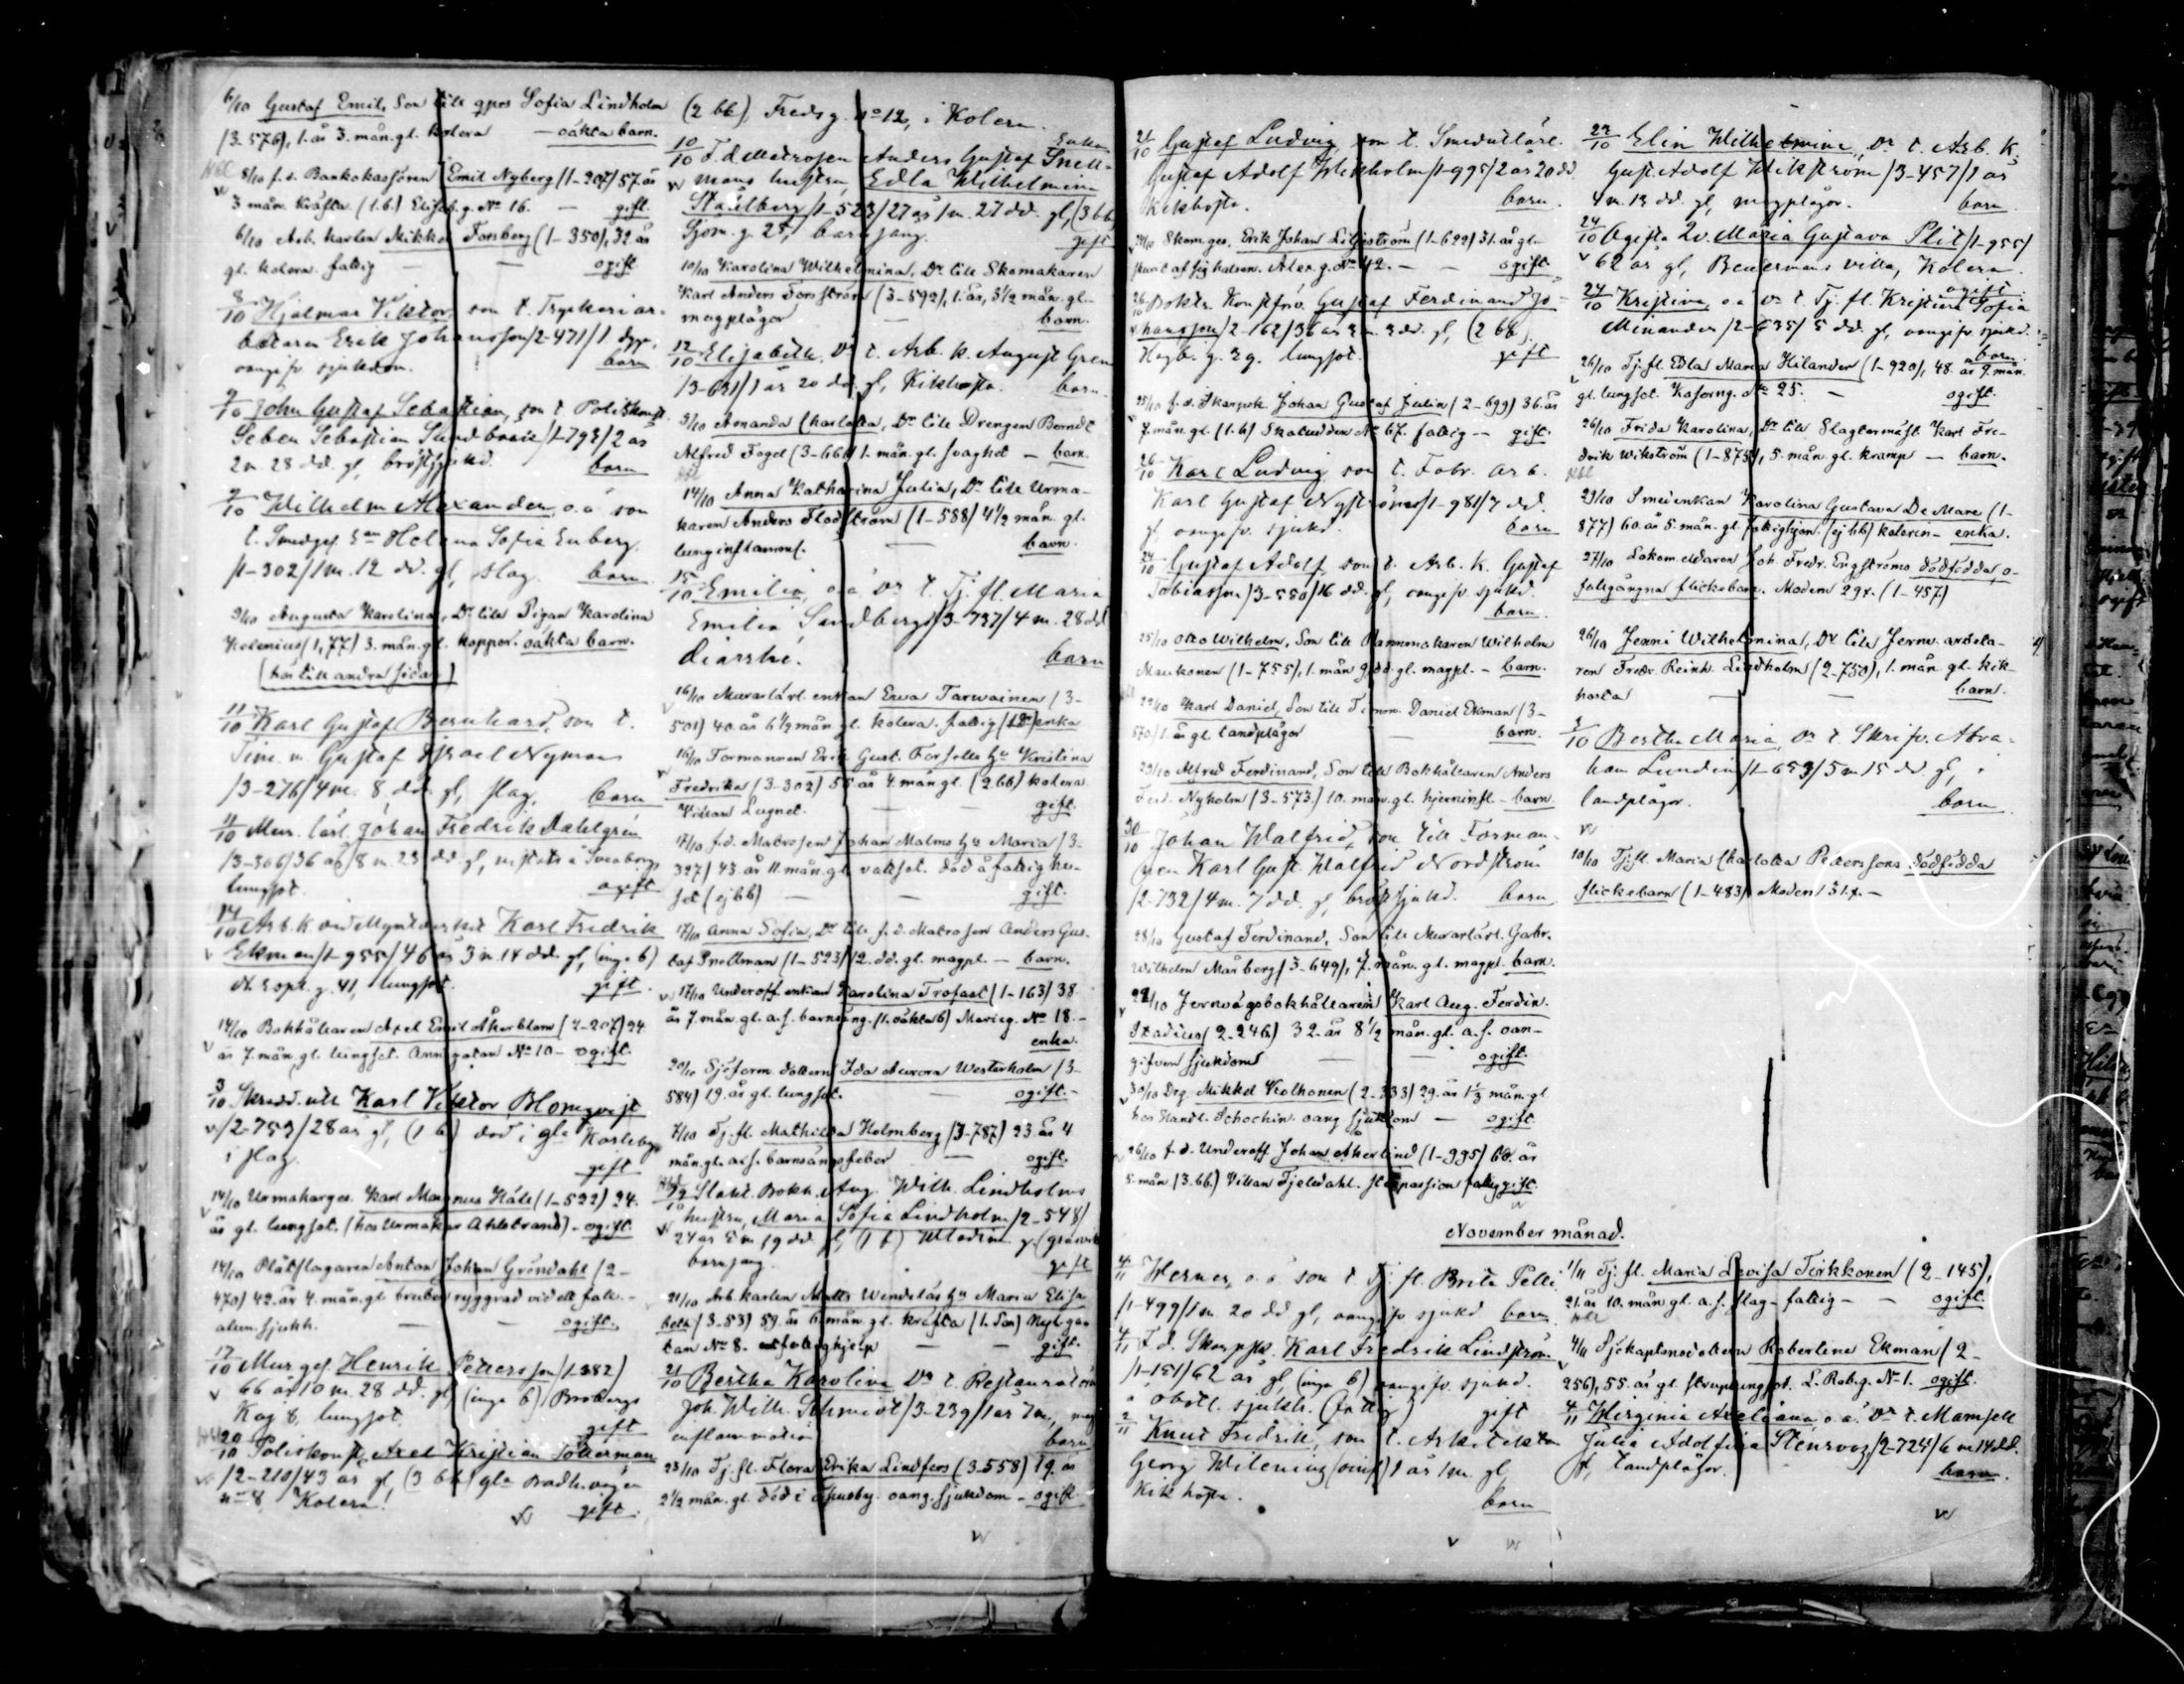 6/10 Gustaf Emil, Son till gpos Sofia Lindholm
(3-576), 1. år 3. mån. gl. Kolera — oäkta barn.
8/10 f. d. Bankokassören Emil Nyberg (1-207) 57. år
3 mån. Kräfta. (1. b.) Elisab. g. No 16. — gift.
6/10 Arb. karlen Mikko Forsberg (1-350), 32 år
gl. kolera. fattig — — ogift
8/10 Hjalmar Viktor, son t. Tryckeriar-
betaren Erik Johansson /2-471/ 1 dgr.
oangifv sjukdom. barn
9/10 John Gustaf Sebastian, son t. Poliskonst.
Seben Sebastian /1-793/ 2 år
2 m 28 dd. gl, bröstsjukd. barn
9/10 Wilhelm Alexander, o.ä. son
t. Smedges Helena Sofia Enberg.
/1-302/ 1 m. 12 dd. gl, slag. barn
9/10 Augusta Karolina, Dr till Pigan Karolina
Kolenius (1,77) 3. mån. gl. koppor. oäkta barn.
(hör till andra sidan)
11/10 Karl Gustaf Bernhard, son t.
Tim. m. Gustaf Israel Nyman
/3-276/ 4 m. 8 dd. gl, slag. barn
11/10 Mur. lärl. Johan Fredrik Dahlgrén
/3-306/ 36 år 8 m. 23 dd gl, Sveaborg
lungsot. ogift
14/10 Arb. K. vid Myntverket Karl Fredrik
Ekman /1-955/ 46 år 3 m. 14 dd. gl, (inga b)
g. 41, lungsot. gift
14/10 Bokhållaren Axel Emil Åkerblom (2-207) 24
år 7. mån. gl. lungsot. Annegatan No 10 — ogift.
3/10 Skrädd. Karl Viktor Blomqvist
/2-759/ 28 år gl, (1 b) död i gla Karleby
i slag. gift
14/10 Urmakarges. Karl Magnus Håls (1-522) 24.
år gl. lungsot. (hos Urmakar Ahlstrand) — ogift.
14/10 Plåtslagaren Anton Johan Gröndahl (2-
470) 42. år 4. mån. gl. bruten ryggrad vid ett fall. —
alm. sjukh. — — ogift.
17/10 Murges. Henrik Pettersson /1-382/
66 år 10 m. 28 dd. gl, (inga b) Brobergs
Kaj 8, lungsot. gift
20/10 Poliskonst. Axel Kristian Tötterman
/2-210/ 43 år gl, (3 bb) gla Badh. vägen
no 8, Kolera! gift.
(2 bb) Fredsg. no 12, i Kolera. Enka
10/10 F. d. Matrosen Anders Gustaf Snell-
mans hustru, Edla Wilhelmina
Stählberg /1-523/ 27 år 1 m. 27 dd. gl, (3 bb
Sjöm. g. 25, barnsäng. gift
10/10 Karolina Wilhelmina, Dr till Skomakaren
Karl Anders Forsström (3-592), 1. år, 3½ mån. gl. —
magplågor — barn.
12/10 Elisabeth, Dr t. Arb. k. August Gren
/3-631/ 1 år 20 dd. gl, Kikhosta. barn.
9/10 Amanda Charlotta, Dr till Drengen Berndt
Alfred Fogel (3-661) 1. mån. gl. svaghet — barn.
14/10 Anna Katharina Julia, Dr till Urma-
karen Anders Flodström (1-588) 4½ mån. gl.
lunginflamm. — barn.
15/10 Emilia, o.ä. Dr t. Tj. fl. Maria
Emilia Sandberg /3-737/ 4 m. 28 dd
diarrhé. barn
16/10 Murarlärl. enkan Ewa Tarwainen (3-
501) 40. år 6½ mån. gl. kolera. fattig enka
16/10 Formannen Erik Gust. Forsells hu Kristina
Fredrika (3-302) 55. år 4. mån. gl. (2 bb) kolera
Villan Lugnet. — gift.
17/10 f. d. Matrosen Johan Malms hu Maria (3-
327) 43. år 11. mån. gl. vattsot. död å fattig hu-
set (ej bb) — — gift.
17/10 Anna Sofia, Dr till f. d. Matrosen Anders Gus-
taf Snellman (1-523) 12. dd. gl. magpl. — barn.
17/10 Underoff. enkan Karolina Trofast (1-163) 38.
år 7. mån. gl. a. s. barnsäng. (1. oäkta b) Marieg. No 18. —
enka.
20/10 Sjöform. dottern Ida Aurora Westerholm (3-
584) 19. år gl. lungsot. — ogift. —
7/10 Tj. fl. Mathilda Holmberg (3-787) 23. år 4
mån. gl. a. s. barnsängsfeber — ogift.
Bokh. Aug. Wilh. Lindholms
hustru, Maria Sofia Lindholm /2-548/
24 år 5 m. 19 dd. gl, (1 b) g.
barnsäng. gift
21/10 Arb. karlen Matts Windelås hu Maria Elisa-
beth (3-53) 59. år 6. mån. gl. kräfta (1. Son) Nyl. ga-
tan No 8. fattighjelp — gift.
21/10 Bertha Karolina Dr t. Restauratören
Joh. Wilh. Schmidt /3-239/ 1 år 7 m,
inflammation barn
23/10 Tj. fl. Flora Erika Lindfors (3-558) 19. år
2½ mån. gl. död i Thusby. oang. sjukdom — ogift.
21/10 Gustaf Ludvig son t. Smedutlärl.
Gustaf Adolf Wikholm /1-995/ 2 år 20 dd.
Kikhosta. barn.
Skom. ges. Erik Johan Liljeström (1-622) 31. år gl. —
skurit af sig halsen. Alex. g. No 42. — — ogift.
26/10 Boktr. Konstförv. Gustaf Ferdinand Jo-
hansson /2-162/ 36 år 2 m. 3 dd. gl, (2 bb)
Högb. g. 29. lungsot. gift
25/10 f. d. Skarpsk. Johan Gustaf Julin (2-699) 36. år
7. mån. gl. (1. b) Skatudden No 67. fattig — gift.
26/10 Karl Ludvig son t. Fabr. arb.
Karl Gustaf Nyström /1-981/ 7 dd.
gl oangifv. sjukd. barn
24/10 Gustaf Adolf son t. Arb. K. Gustaf
Tobiasson /3-550/ 16 dd. gl, oangifv sjukd.
barn
25/10 Otto Wilhelm, Son till Pannmakaren Wilhelm
Maukonen (1-755), 1. mån 9 dd. gl. magpl. — barn.
Karl Daniel, Son till Timm. Daniel Ekman (3-
570) 1. år gl. tandplågor — barn.
23/10 Alfred Ferdinand, Son till Bokhållaren Anders
Ferd. Nyholm (3-573.) 10. mån. gl. hjerninfl. — barn.
30/10 Johan Walfrid, son till Forman-
nen Karl Gust. Walfrid Nordström
/2-732/ 4 m. 7 dd. gl, bröstsjukd. barn
28/10 Gustaf Ferdinand, Son till Murarlärl. Gabr.
Wilhelm Månberg (3-649), 7. mån. gl. magpl. barn.
Jernvägsbokhållaren Karl Aug. Ferdin.
Stadius (2-246) 32. år 8½ mån. gl. a. s. oan-
gifven sjukdom — — ogift.
30/10 Drg. Mikkel Wolhonen (2-333) 29. år 1½ mån. gl
hos Handl. Schochin. oang. sjukdom — ogift.
26/10 f. d. Underoff. Johan Åkerlind (1-995) 60. år
5. mån (3. bb) Villan Fjeldahl. fattig gift.
23/10 Elin Wilhelmina, Dr t. Arb. K.
Gust. Adolf Wikström /3-457/ 1 år
4 m. 13 dd. gl, magplågor. barn
24/10 Ogifta Qv. Maria Gustava Plit /1-955/
62 år gl, villa, Kolera.
ogift
24/10 Kristina, o.ä. Dr t. Tj. fl. Kristina Sofia
Minander /2-635/ 5 dd. gl, oangifv sjukd.
barn.
26/10 Tj. fl. Edla Maria Hilander (1-920), 48. år 9. mån.
gl. lungsot. Kaserng. No 25. — ogift.
26/10 Frida Karolina, Dr till Slagtermäst. Karl Fre-
drik Wikström (1-875), 5. mån. gl. kramp — barn.
23/10 Smedenkan Karolina Gustava De Mare (1-
877) 60. år 5. mån. gl. fattighjon. (ej bb) kolerin — enka.
27/10 Lokom. eldaren Joh. Fredr. Engströms dödfödda, o-
fullgångna flickebarn. Modern 29 år. (1-457)
26/10 Jenni Wilhelmina, Dr till Jernv. arbeta-
ren Fredr. Reinh. Lindholm (2-750), 1. mån gl. kik-
hosta — — barn.
Bertha Maria, Dr t. Skrifv. Abra-
ham Lundin /1-653/ 5 m 15 dd. gl, i
tandplågor. barn
10/10 Tj. fl. Maria Charlotta Petterssons dödfödda
flickebarn (1-483). Modern 31 år. —
November månad.
4/11 Werner, o.ä. son t. Tj. fl. Brita Pelli
/1-499/ 1 m. 20 dd gl, oangifv sjukd barn
4/11 F. d. Skarpsk. Karl Fredrik Lindström
/1-151/ 62 år gl, (inga b) oangifv. sjukd.
å obotl. sjukh. (fattig) gift
2/11 Knut Fredrik, son t. Arkitekten
Georg Wilenius 1 år 1 m. gl,
Kikhosta. barn
1/11 Tj. fl. Maria Lovisa Tirkkonen (2-145),
21. år 10. mån gl. a. s. slag — fattig — — ogift.
4/11 Sjökaptensdottern Robertina Ekman (2-
256), 55. år gl. strupelungsot. L. Rob. g. No 1. ogift.
4/11 Werginia Axeliana, o.ä. Dr t. Mamsell
Julia Adolfina Stenroos /2-724/ 6 m 14 dd.
gl, tandplågor. barn.